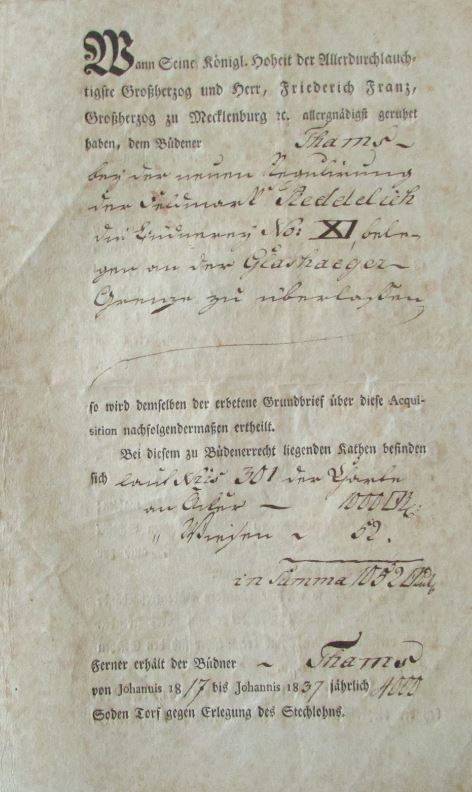 Wann Seine Königl. Hoheit der Allerdurchlauch-
tigste Großherzog und Herr, Friederich Franz,
Großherzog zu Mecklenburg ꝛc. allergnädigst geruhet
haben, dem Büdener Thams
bey der neuen Regulirung
der Feldmark Reddelich
die Büdnerey No: XI, bele-
gen an der Glashaeger
Grenze zu überlassen,
so wird demselben der erbetene Grundbrief über diese Acqui-
sition nachfolgendermaßen ertheilt.
Bei diesem zu Büdenerrecht liegenden Kathen befinden
sich laut 301 der Charte
an Acker — 1000 □R.
" Wiesen ~ 52.
in Summa 1052 □Rut.
Ferner erhält der Büdner ~ Thams
von Johannis 1817 bis Johannis 1837 jährlich 4000
Soden Torf gegen Erlegung des Stechlohns.